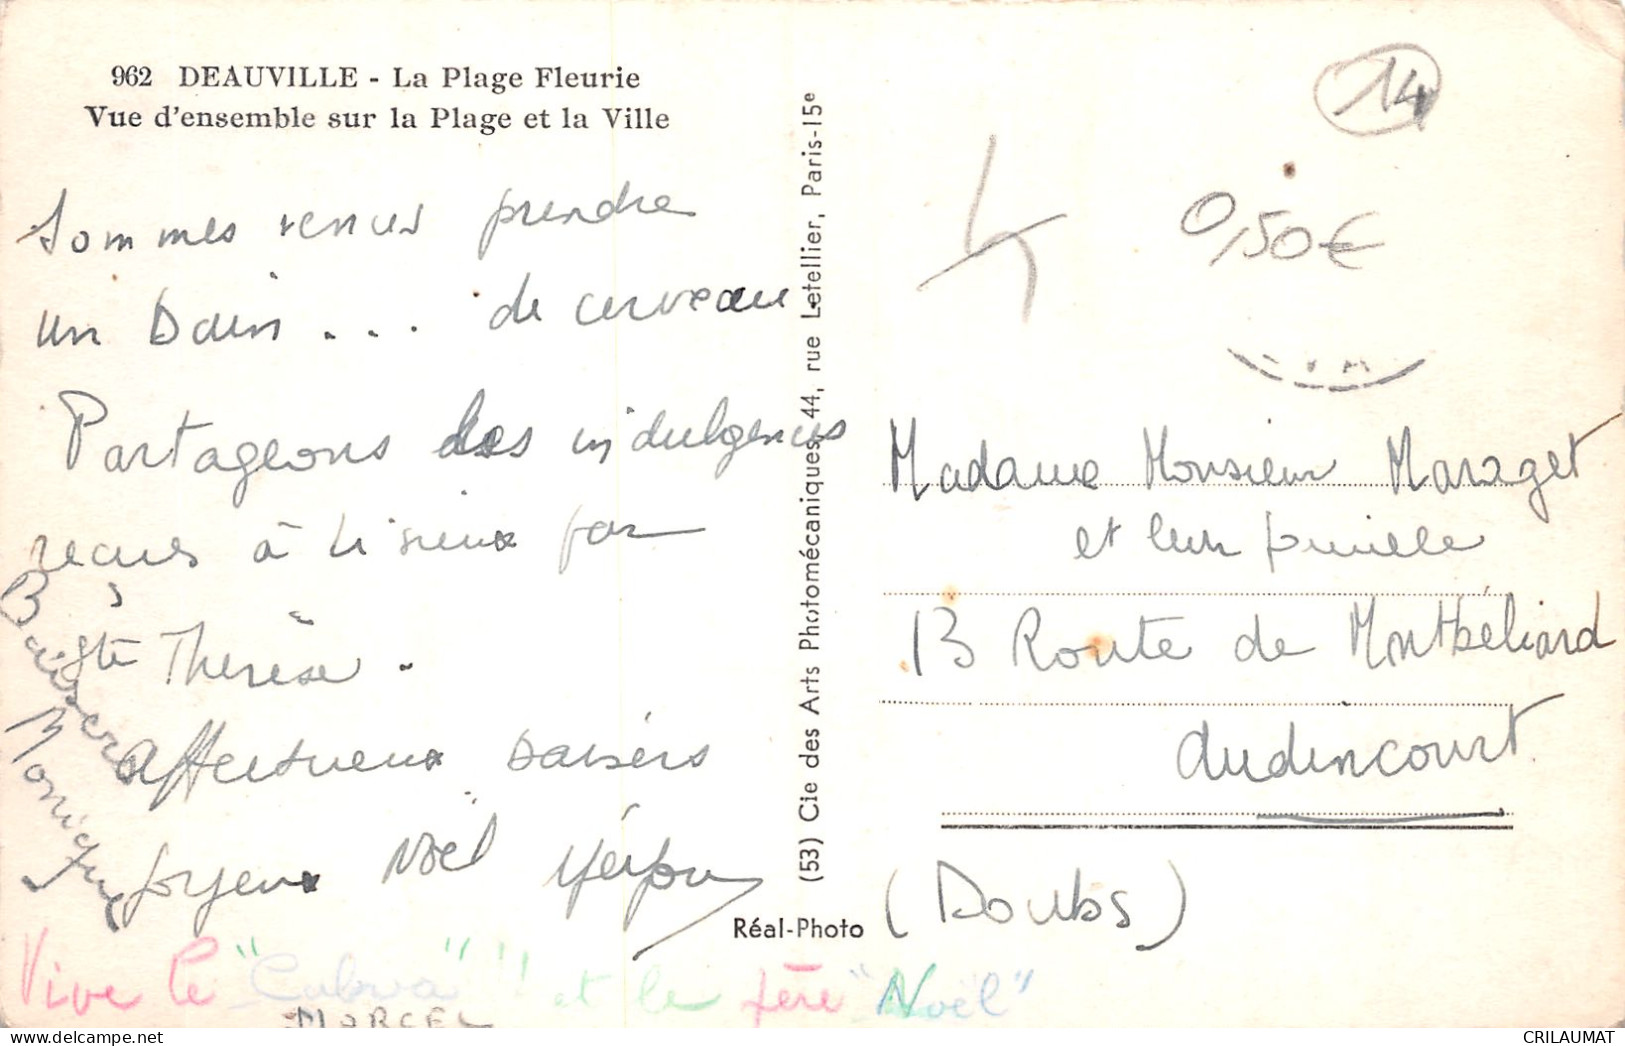 962 DEAUVILLE - La Plage Fleurie
Vue d'ensemble sur la Plage et la Ville
Sommes venus prendre
un bain ... de cerveau.
Partageons les indulgences
recues à Lisieux par
Ste Thérèse.
Affectueux baisers
Joyeux Noël
Baisers
Monique
Vive le "Cabva" !! et le père "Noël"
MARCEL
(53) Cie des Arts Photomécaniques, 44, rue Letellier, Paris-15e
Réal-Photo
14
0,50€
Madame Monsieur Maraget
et leur famille
13 Route de Montbéliard
Audincourt
(Doubs)
CRILAUMAT